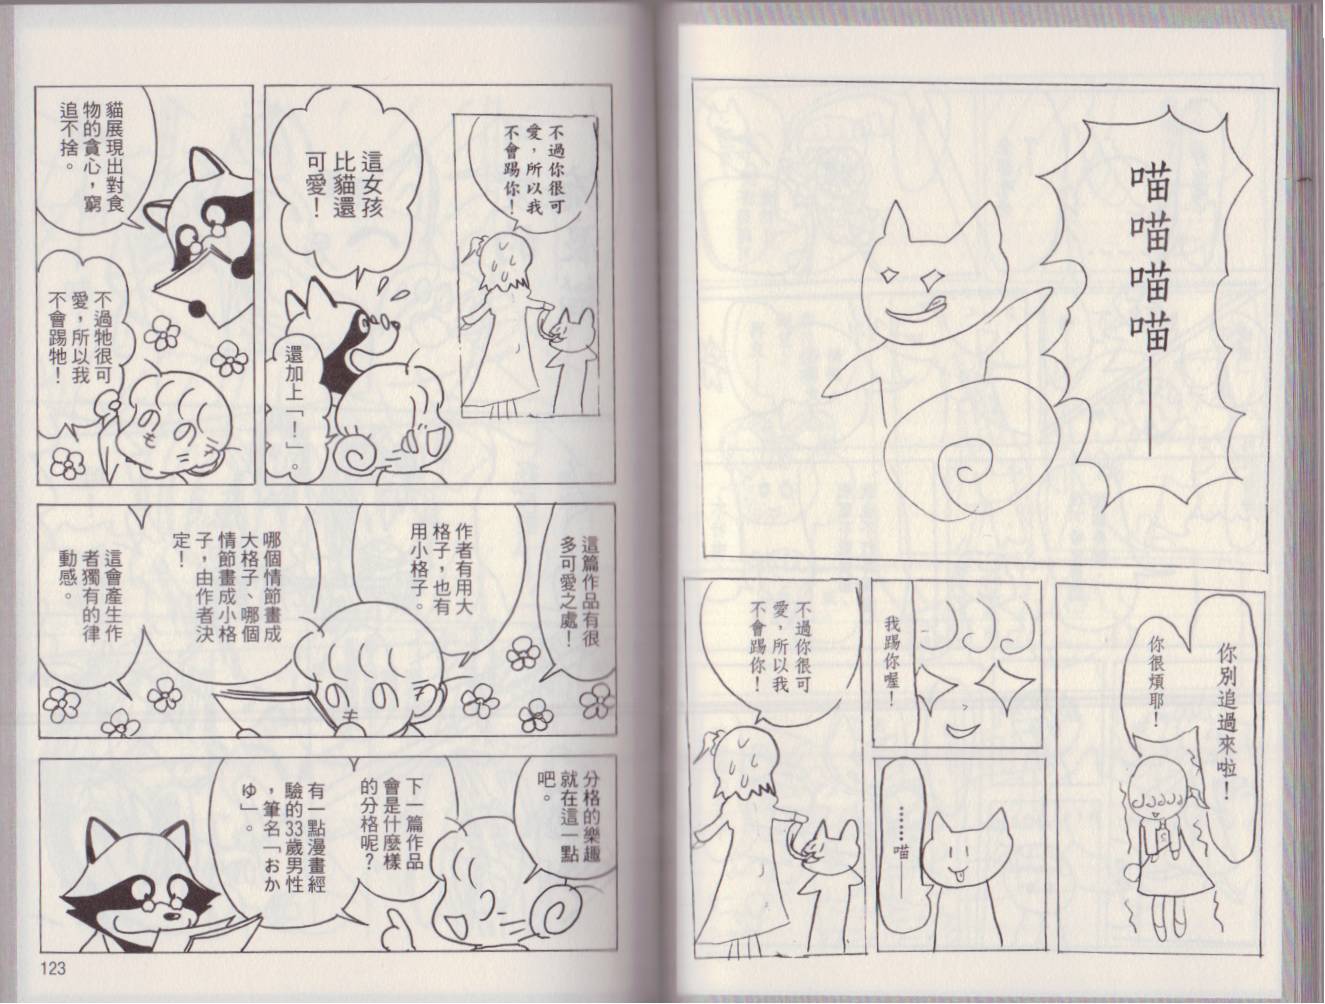 喵喵喵喵——
你別追過來啦！
你很煩耶！
我踢你喔！
⋯⋯⋯喵——
不過你很可
愛，所以我
不會踢你！
不過你很可
愛，所以我
不會踢你！
這女孩
比貓還
可愛！
還加上「！」。
貓展現出對食
物的貪心，窮
追不捨。
不過牠很可
愛，所以我
不會踢牠！
這篇作品有很
多可愛之處！
作者有用大
格子，也有
用小格子。
哪個情節畫成
大格子、哪個
情節畫成小格
子，由作者決
定！
這會產生作
者獨有的律
動感。
分格的樂趣
就在這一點
吧。
下一篇作品
會是什麼樣
的分格呢？
有一點漫畫經
驗的33歲男性
，筆名「おか
ゆ」。
123